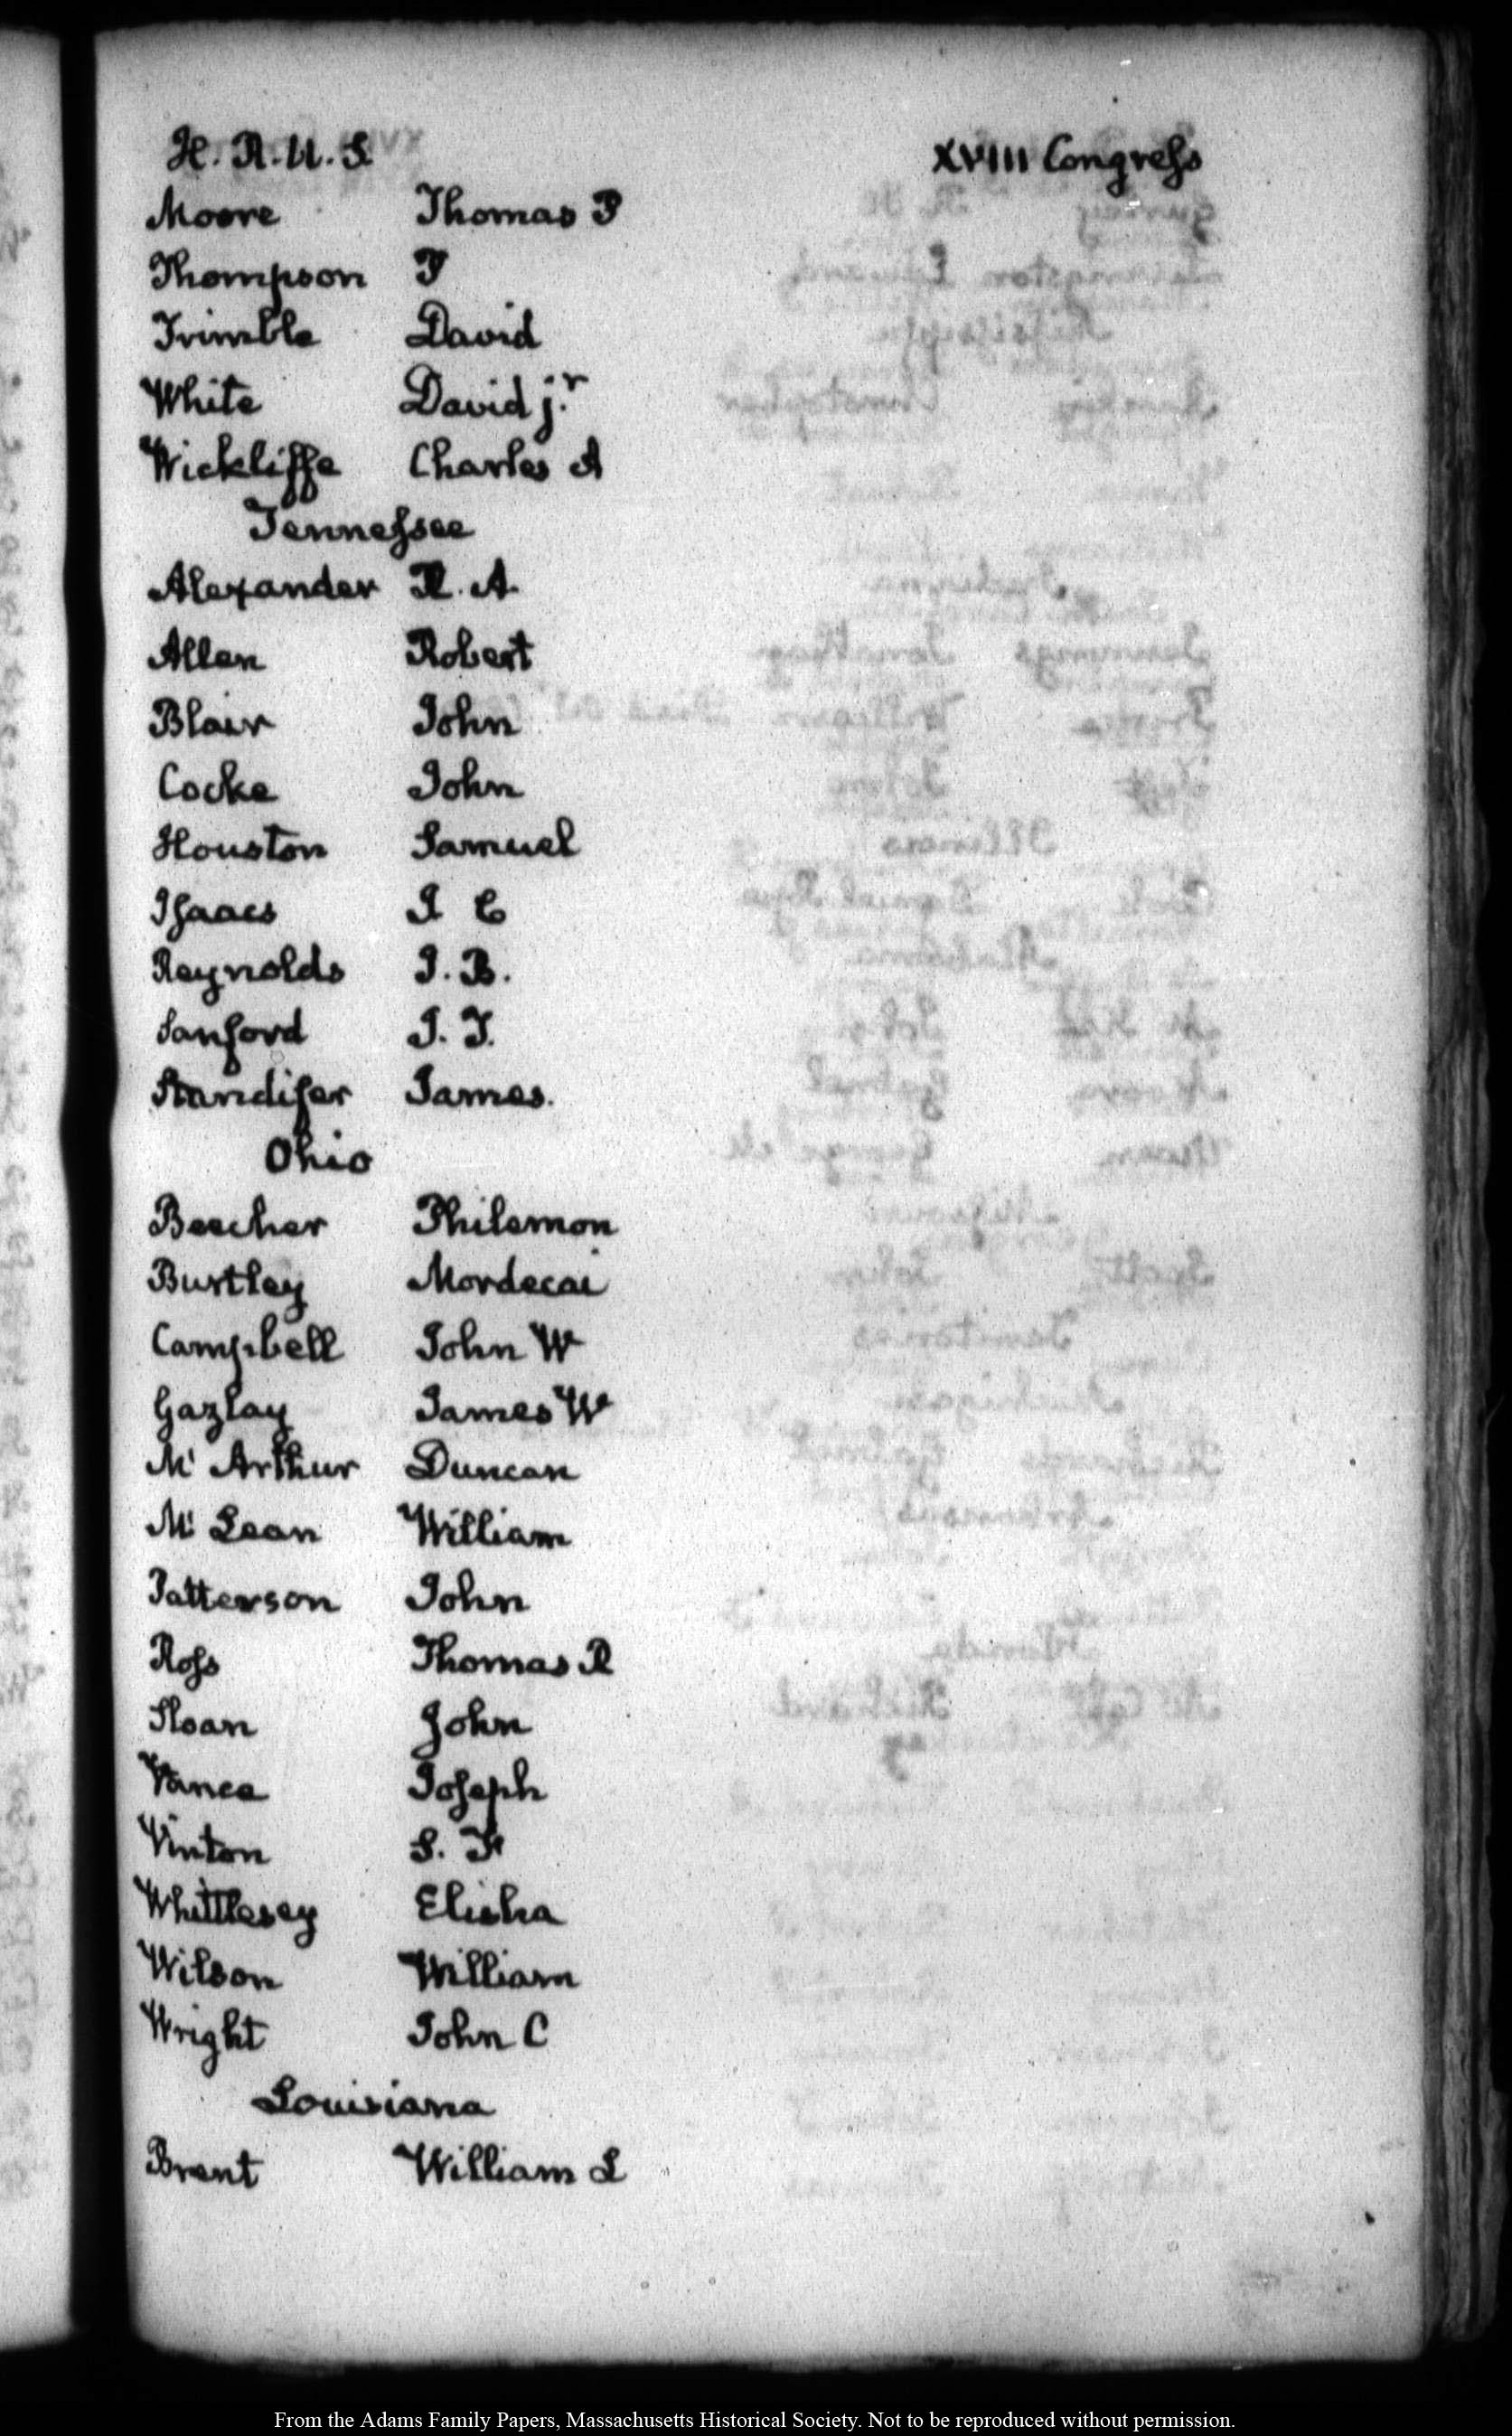 H. R. U. S XVIII Congress
Moore Thomas P
Thompson P
Trimble David
White David jr
Wickliffe Charles A
Tennessee
Alexander A. A.
Allen Robert
Blair John
Cocke John
Houston Samuel
Isaacs I C
Reynolds J. B.
Sanford J. T.
Standifer James.
Ohio
Beecher Philemon
Burtley Mordecai
Campbell John W
Gazlay James W
Mc Arthur Duncan
Mc Lean William
Patterson John
Ross Thomas R
Sloan John
Vance Joseph
Vinton S. F
Whittlesey Elisha
Wilson William
Wright John C
Louisiana
Brent William L
From the Adams Family Papers, Massachusetts Historical Society. Not to be reproduced without permission.